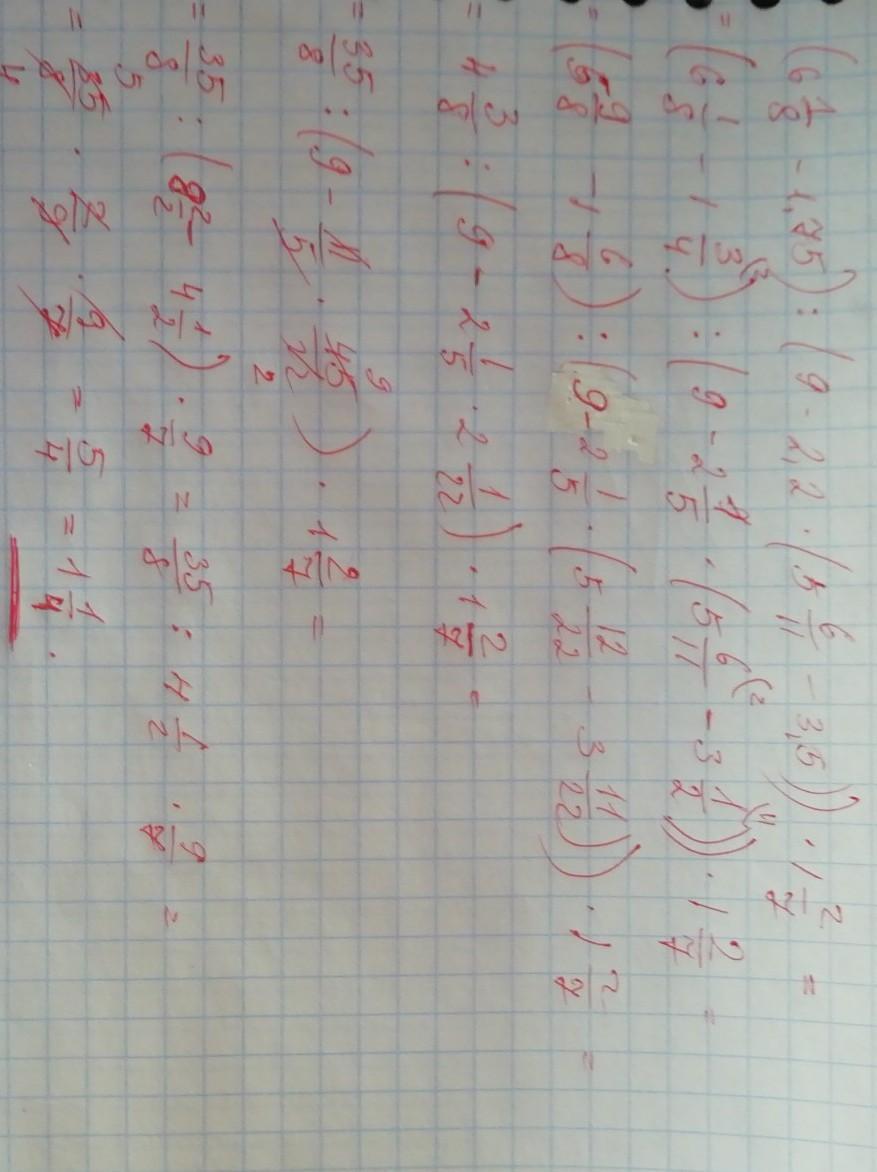 (6 1/8 - 1,75) : (9 - 2,2 · (5 6/11 - 3,5)) · 1 2/7 =
= (6 1/8 - 1 3/4 (2) : (9 - 2 1/5 · (5 6/11 (2 - 3 1/2 (11)) · 1 2/7 =
= (5 9/8 - 1 6/8) : (9 - 2 1/5 · (5 12/22 - 3 11/22)) · 1 2/7 =
= 4 3/8 : (9 - 2 1/5 · 2 1/22) · 1 2/7 =
= 35/8 : (9 - 11/5 · 45/22) · 1 2/7 =
9
2
= 35/8 : (8 2/2 - 4 1/2) · 9/7 = 35/8 : 4 1/2 · 9/7 =
= 35/8 · 2/9 · 9/7 = 5/4 = 1 1/4.
5
4